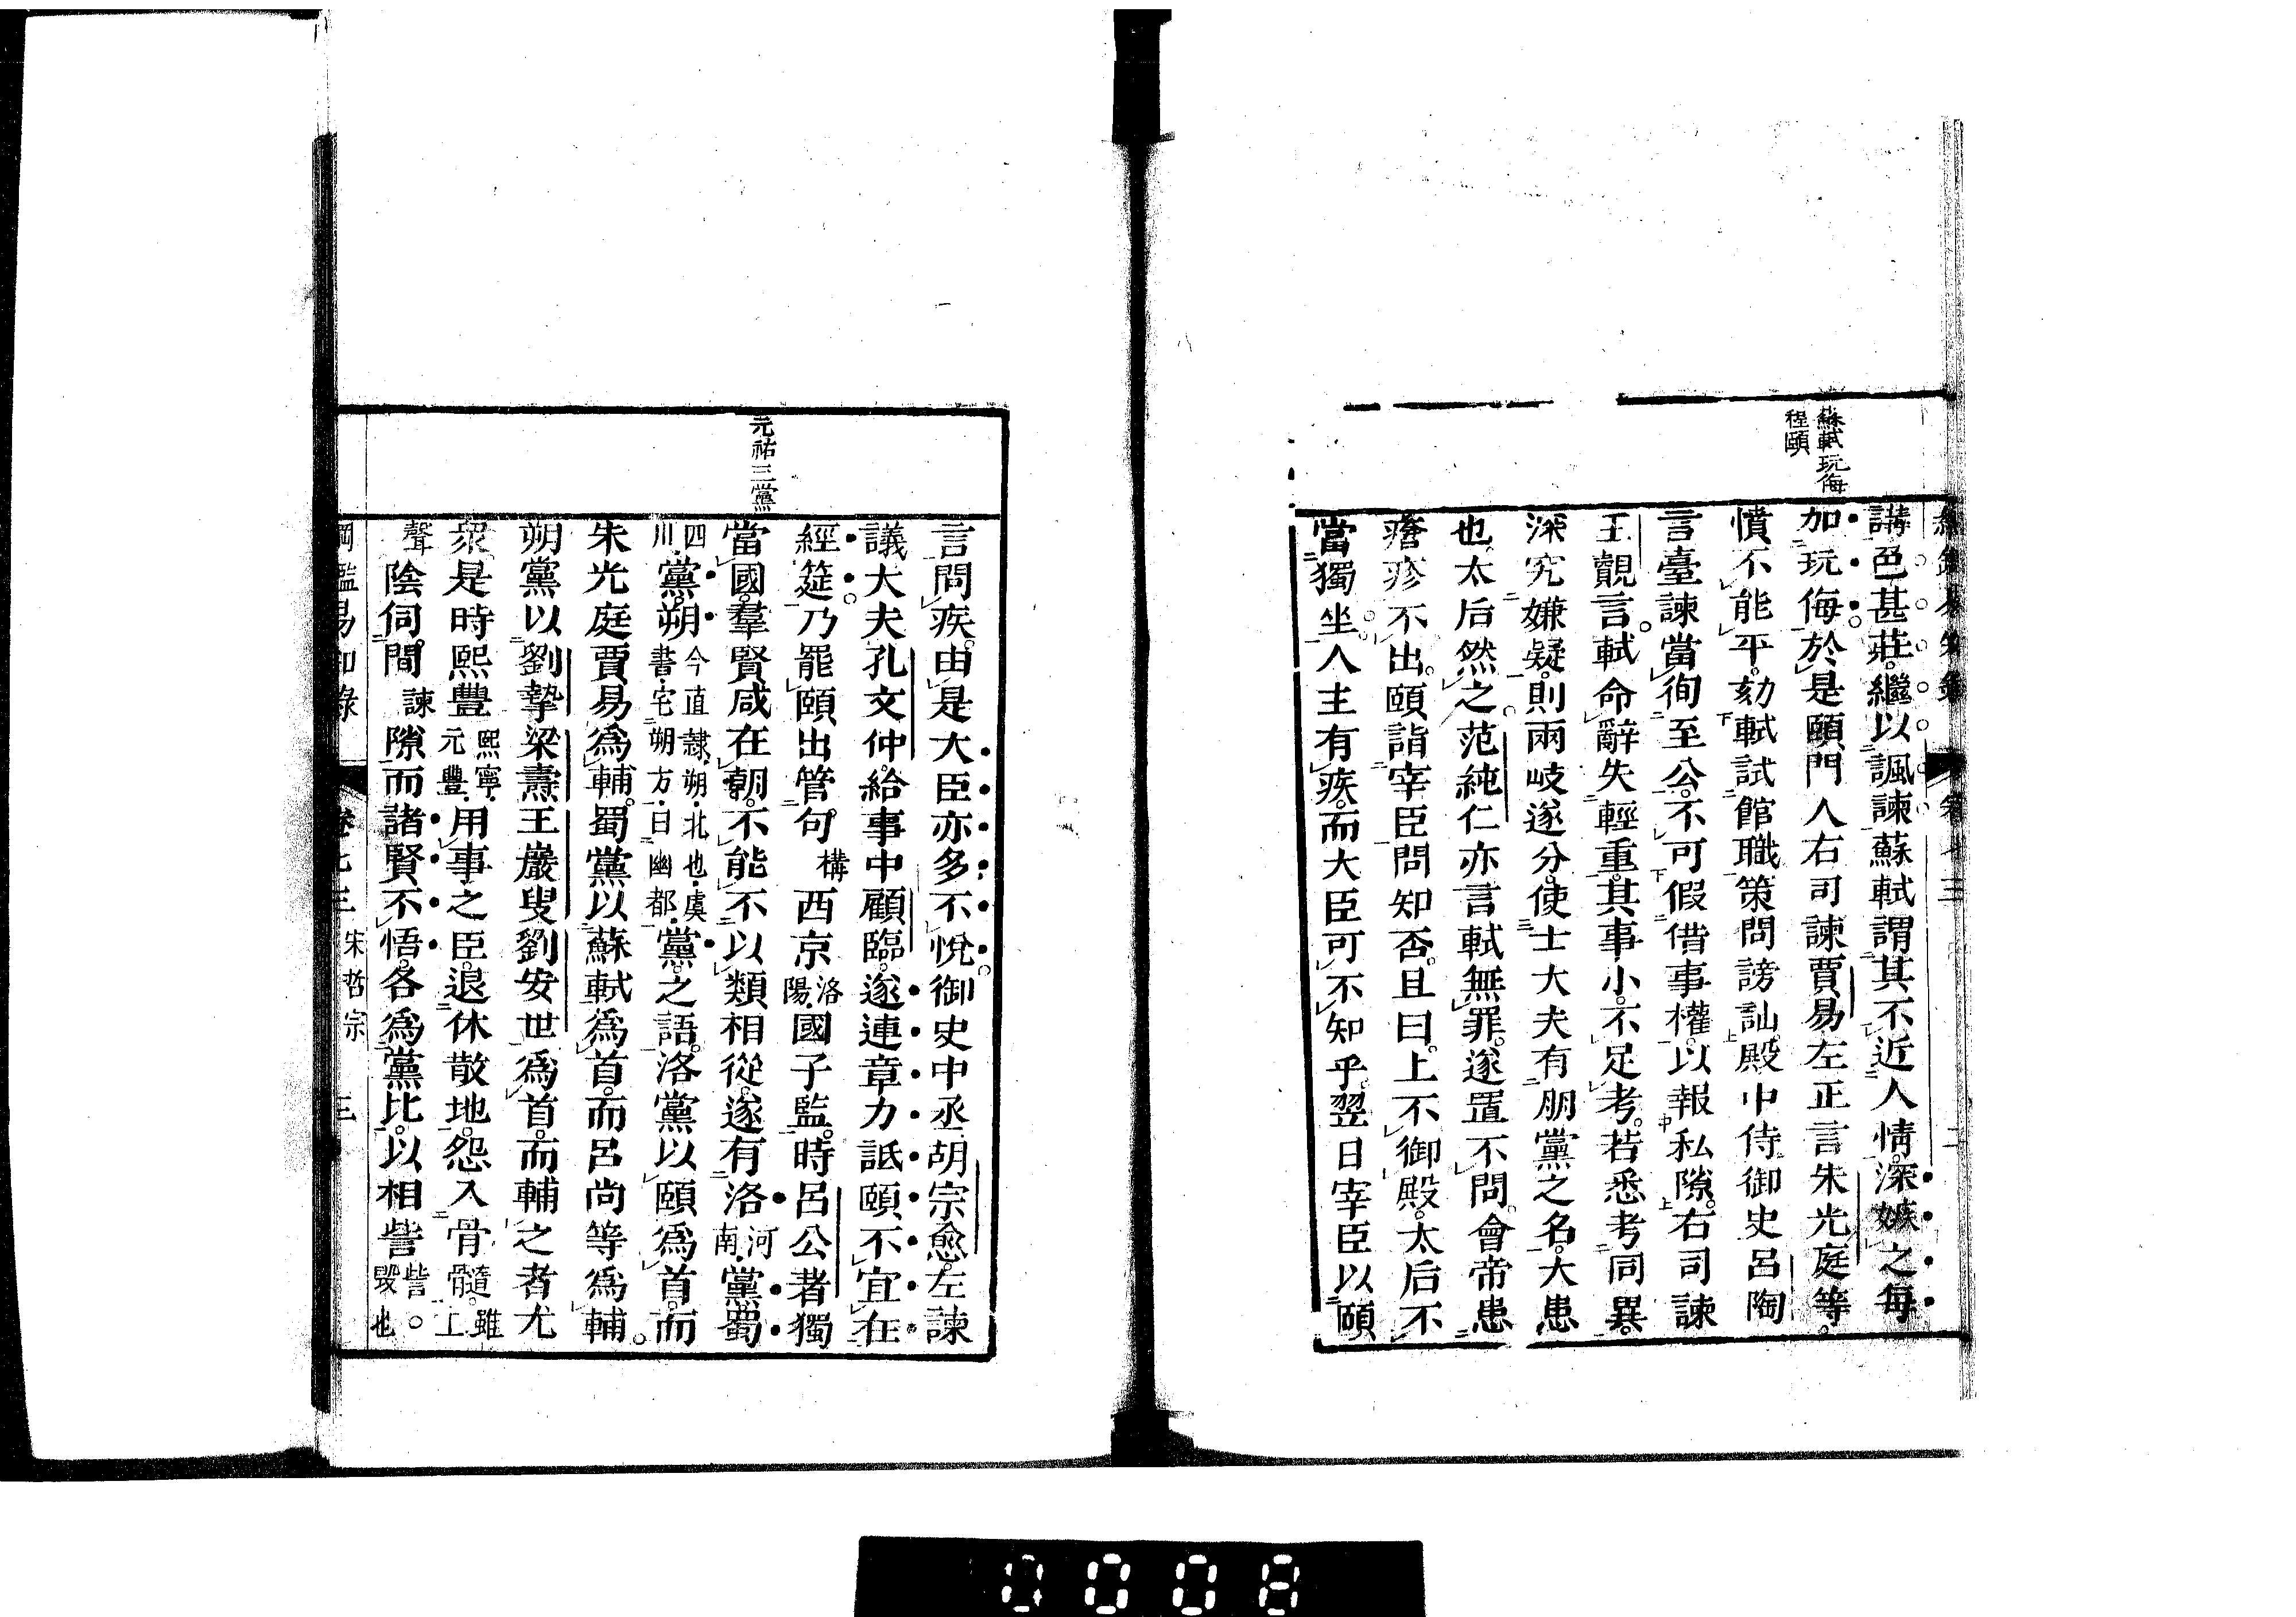 蘇軾玩侮
程頤
講色甚莊。繼以諷諫。蘇軾謂其不近人情。深嫉之。每
加玩侮。於是頤門人右司諫賈易左正言朱光庭等。
憤不能平。劾軾試館職策問謗訕。殿中侍御史呂陶
言臺諫當徇至公。不可假借事權。以報私隙。右司諫
王覿言。軾命辭失輕重。其事小。不足考。若悉考同異。
深究嫌疑。則兩岐遂分。使士大夫有朋黨之名。大患
也。太后然之。范純仁亦言軾無罪。遂置不問。會帝患
瘡疹不出。頤詣宰臣問知否。且曰。上不御殿。太后不
當獨坐。人主有疾。而大臣可不知乎。翌日宰臣以頤
元祐三黨
言問疾。由是大臣亦多不悅。御史中丞胡宗愈。左諫
議大夫孔文仲。給事中顧臨。遂連章力詆頤不宜在
經筵。乃罷頤出管句構西京洛陽。國子監。時呂公著獨
當國。羣賢咸在朝。不能不以類相從。遂有洛河南。黨蜀
四川。黨。朔今直隷。朔。北也。虞書。宅朔方。曰幽都。黨之語。洛黨以頤爲首。而
朱光庭賈易爲輔。蜀黨以蘇軾爲首。而呂尚等爲輔。
朔黨以劉摯梁燾王巖叟劉安世爲首。而輔之者尤
衆。是時熙豐熙寧。元豐。用事之臣。退休散地。怨入骨髓。雖上
聲陰伺間諫隙。而諸賢不悟。各爲黨比。以相訾訾。毀也
綱鑑易知錄
卷七三
宋哲宗
三